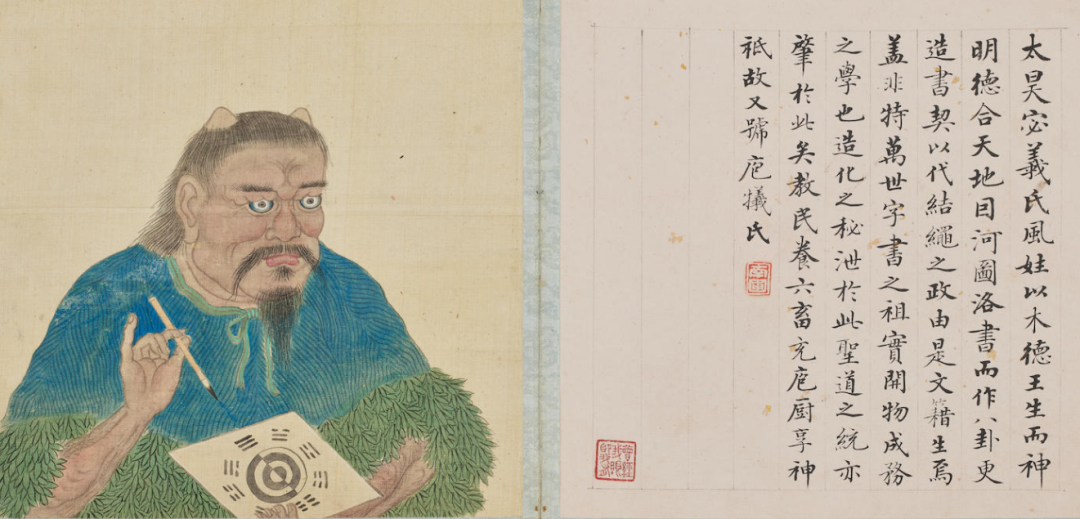 太昊宓羲氏風姓以木德王生而神
明德合天地因河圖洛書而作八卦更
造書契以代結繩之政由是文籍生焉
盖非特萬世字書之祖實開物成務
之學也造化之秘泄於此聖道之統亦
肇於此矣教民養六畜充庖厨享神
祇故又號庖犧氏